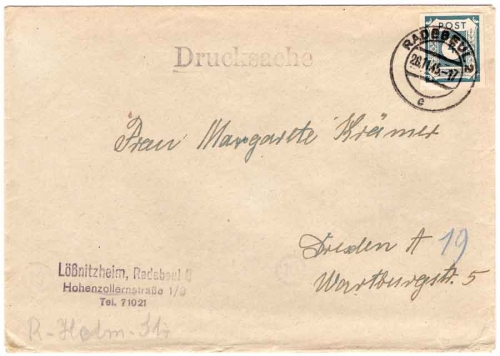 POST
RADEBEUL 2
26.11.45.-17
c
Drucksache
Frau Margarete Krämer
Dresden A 19
Wartburgstr. 5
Lößnitzheim, Radebeul II
Hohenzollernstraße 1/3
Tel. 71021